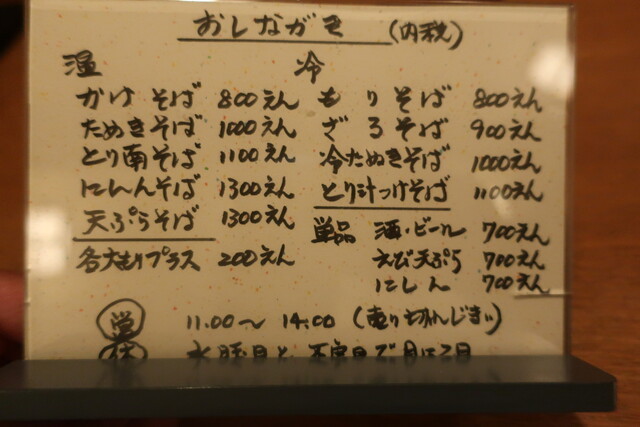 おしながき (内税)
温
かけそば 800えん
たぬきそば 1000えん
とり南そば 1100えん
にしんそば 1300えん
天ぷらそば 1300えん
各大もりプラス 200えん
冷
もりそば 800えん
ざるそば 900えん
冷たぬきそば 1000えん
とり汁つけそば 1100えん
単品 酒・ビール 700えん
えび天ぷら 700えん
にしん 700えん
営 11:00〜14:00 (売り切れじまい)
休 水曜日と不定日で月に2日